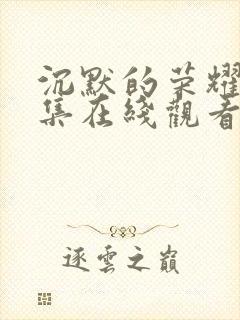 沉默的荣耀
集在綫觀看
逐雲之巔